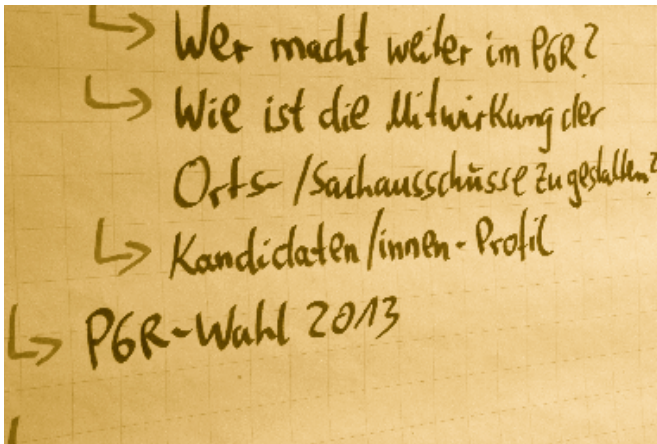 ↳ Wer macht weiter im PGR?
↳ Wie ist die Mitwirkung der
Orts-/Sachausschüsse zu gestalten?
↳ Kandidaten/innen-Profil
↳ PGR-Wahl 2013